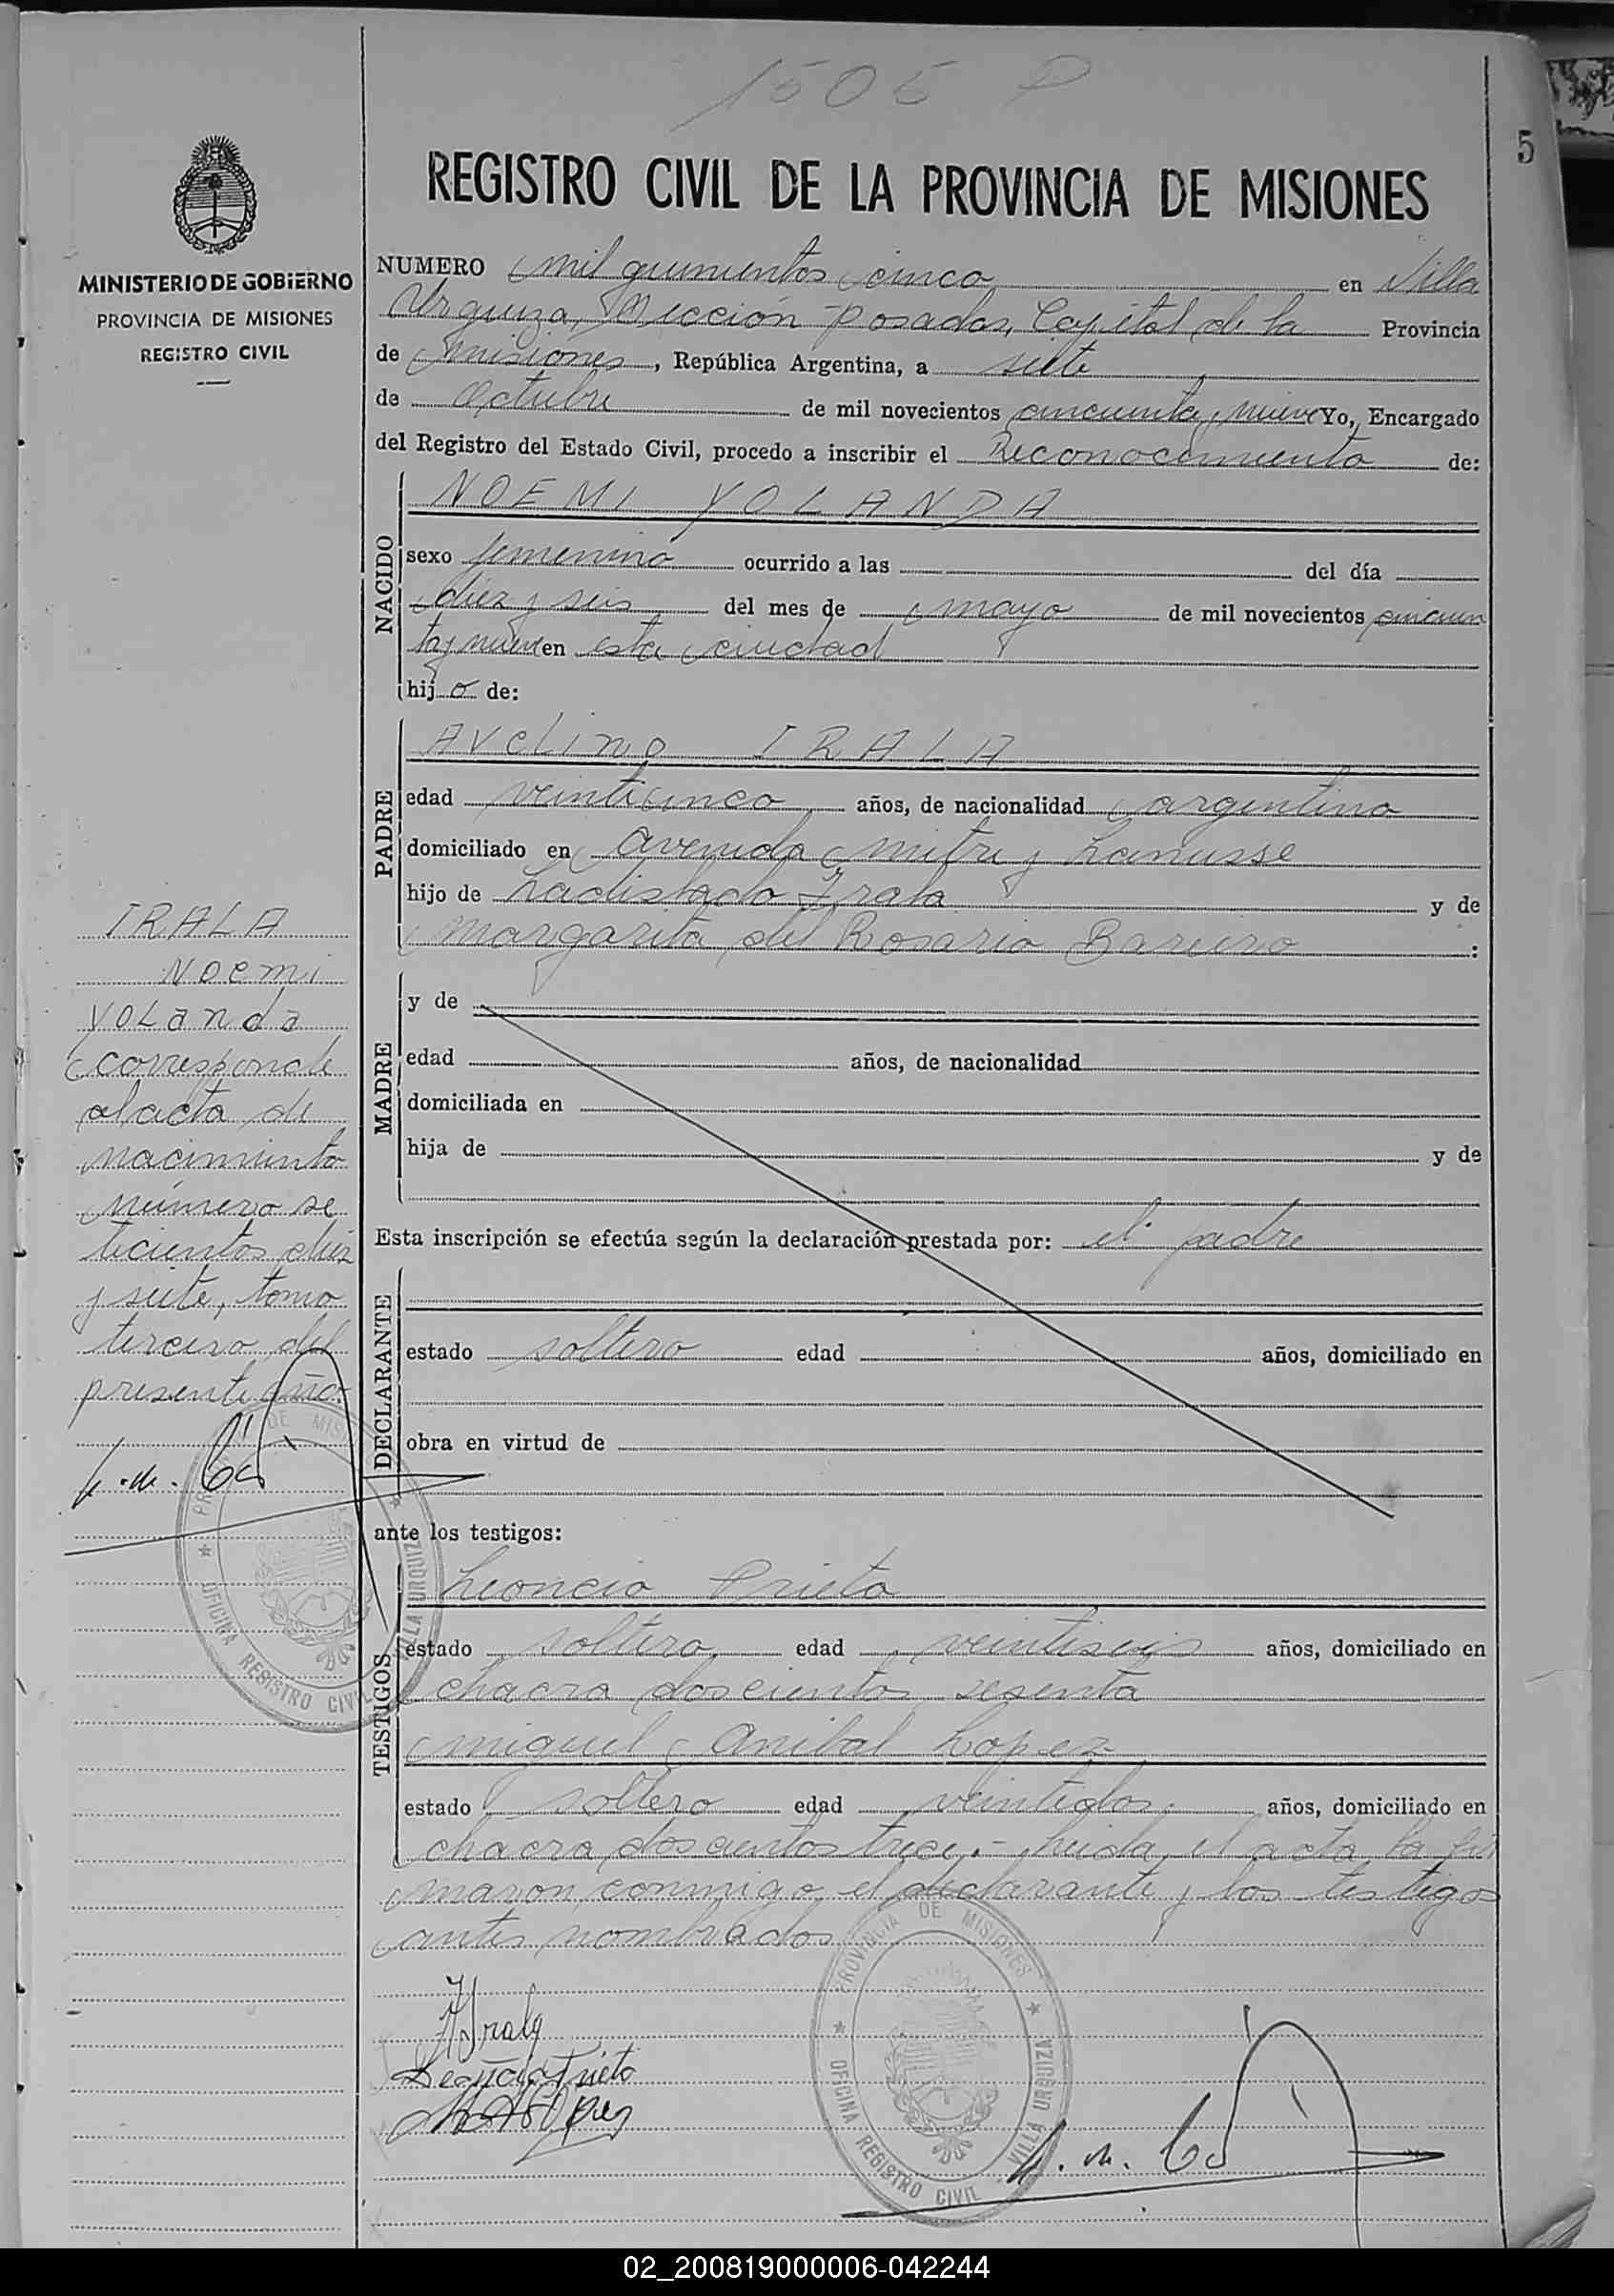 1505 P
5
REGISTRO CIVIL DE LA PROVINCIA DE MISIONES
MINISTERIO DE GOBIERNO
PROVINCIA DE MISIONES
REGISTRO CIVIL
NUMERO mil quinientos cinco en Villa
Urquiza, Sección Posadas, Capital de la Provincia
de Misiones, República Argentina, a siete
de Octubre de mil novecientos cincuenta y nueve Yo, Encargado
del Registro del Estado Civil, procedo a inscribir el Reconocimiento de:
NACIDO
NOEMI YOLANDA
sexo femenino ocurrido a las del día
diez y seis del mes de mayo de mil novecientos cincuen
ta y nueve en esta ciudad
hijo de:
PADRE
AVELINO IRALA
edad veinticinco años, de nacionalidad argentino
domiciliado en Avenida Mitre y Lanusse
hijo de Ladislado Irala y de
Margarita del Rosario Barrero :
MADRE
y de
edad años, de nacionalidad
domiciliada en
hija de y de
Esta inscripción se efectúa según la declaración prestada por: el padre
DECLARANTE
estado soltero edad años, domiciliado en
obra en virtud de
ante los testigos:
TESTIGOS
Leoncio Prieto
estado soltero, edad veintiseis años, domiciliado en
chacra doscientos sesenta
Miguel Anibal Lopez
estado soltero edad veintidos, años, domiciliado en
chacra doscientos trece.- Leida el acta la fir
maron conmigo el declarante y los testigos
antes nombrados
IRALA
Noemi
YOLanda
corresponde
al acta de
nacimiento
número se
tecientos diez
y siete, tomo
tercero del
presente año.
PROVINCIA DE MISIONES
OFICINA REGISTRO CIVIL
VILLA URQUIZA
AIrala
Leoncio Prieto
MALópez
PROVINCIA DE MISIONES
OFICINA REGISTRO CIVIL
VILLA URQUIZA
02_200819000006-042244